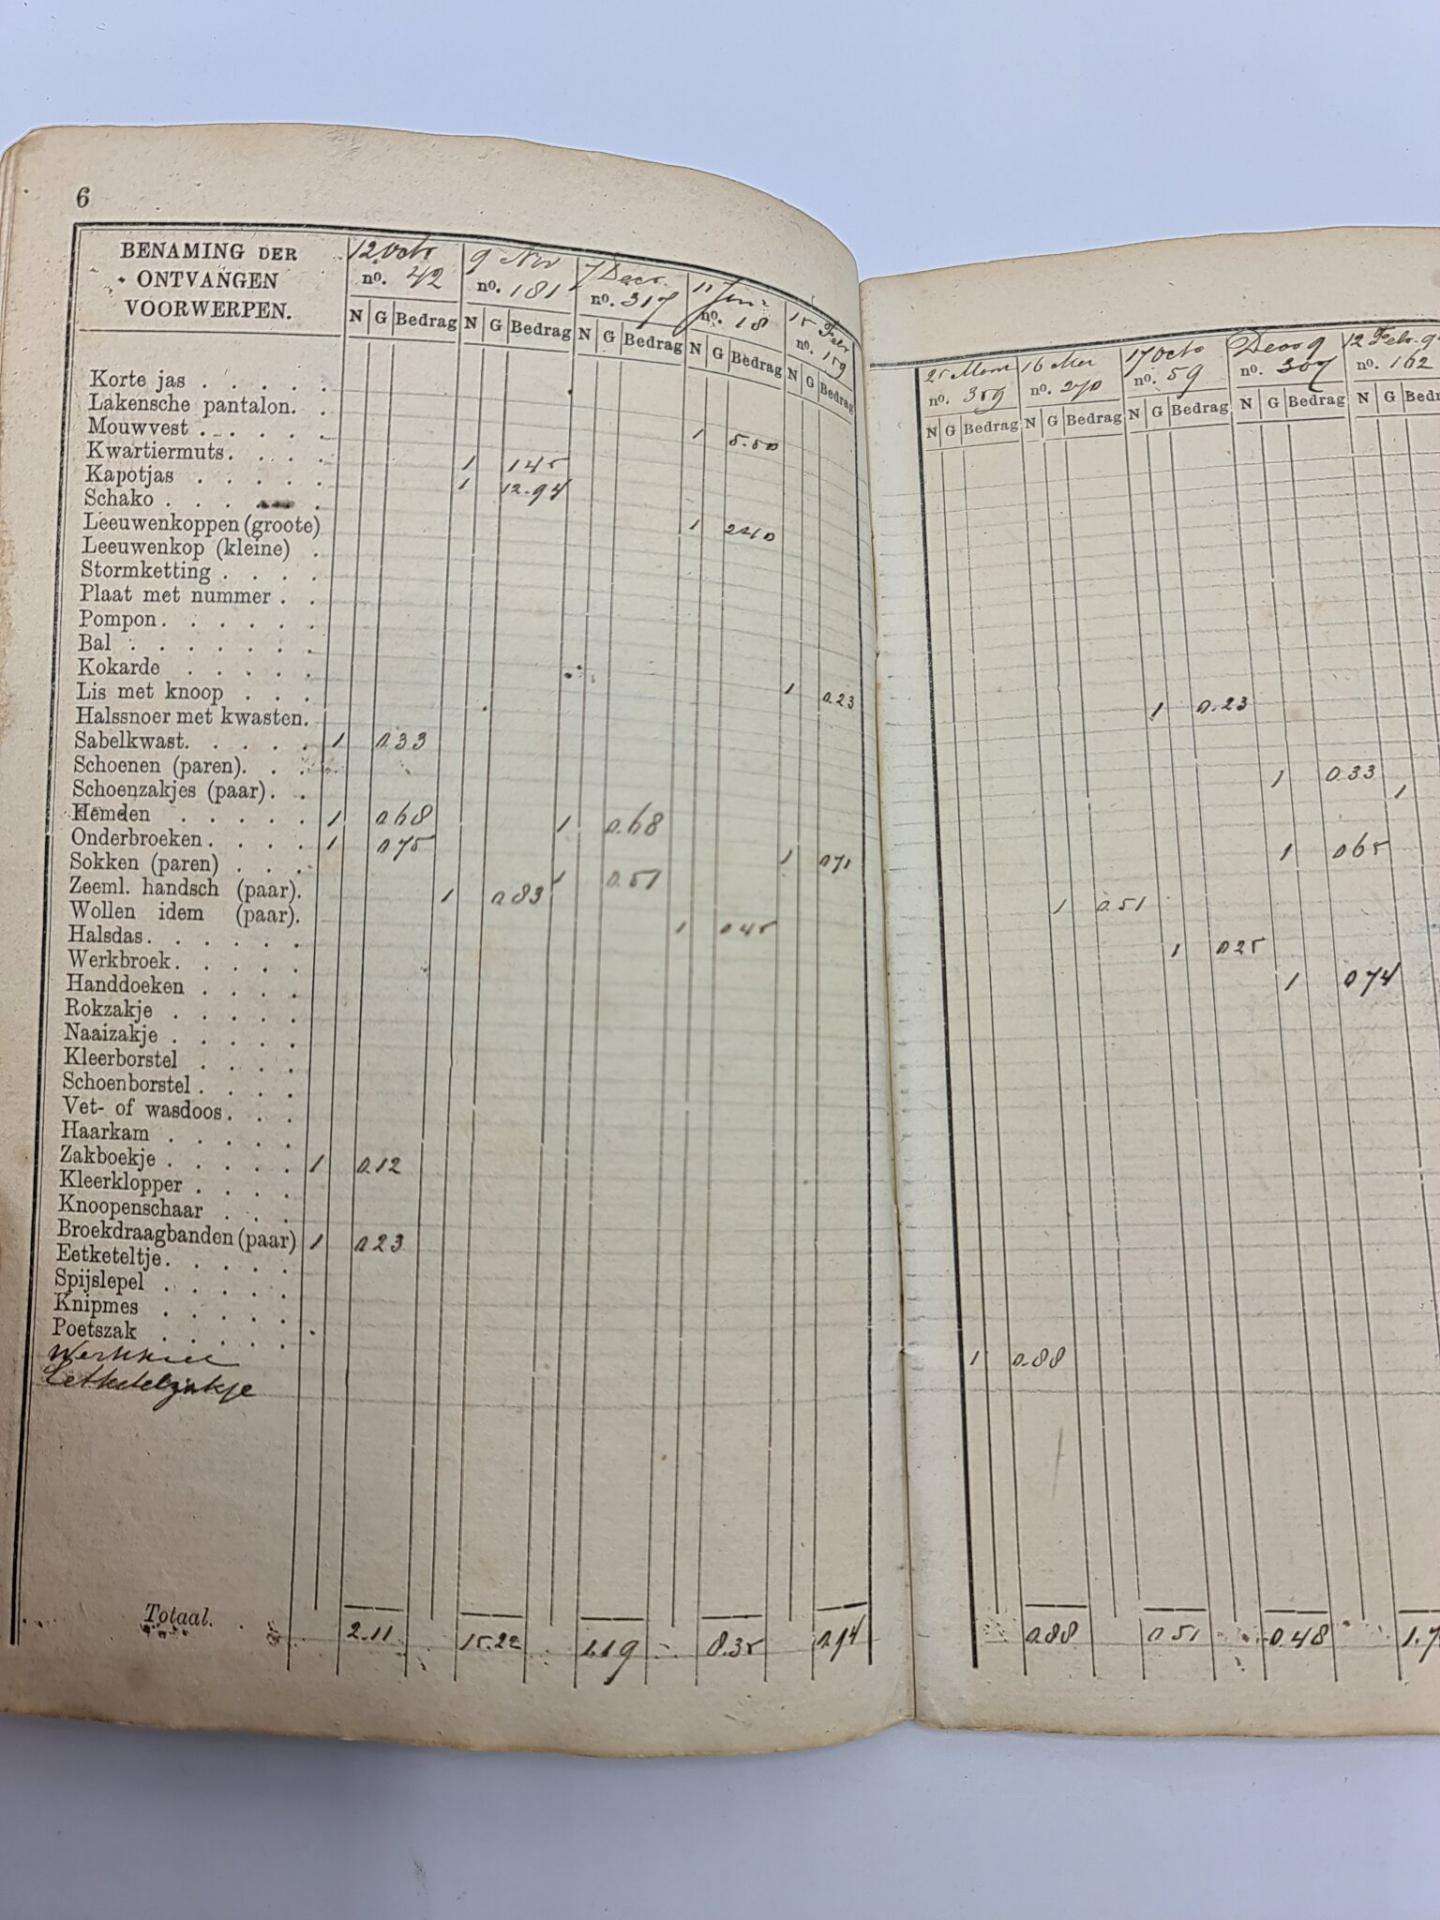 6
BENAMING DER
ONTVANGEN
VOORWERPEN.
12 Octr 9 Nov 7 Decr. 11 Jan: 15 Febr
no. 42 no. 181 no. 317 no. 18 no. 159
N G Bedrag N G Bedrag N G Bedrag N G Bedrag N G Bedrag
Korte jas . . . . .
Lakensche pantalon. .
Mouwvest . . . . . 1 5.50
Kwartiermuts. . . . 1 1 45
Kapotjas . . . . . 1 12.94
Schako . . . . .
Leeuwenkoppen (groote) 1 2 40
Leeuwenkop (kleine) .
Stormketting . . . .
Plaat met nummer . .
Pompon. . . . . .
Bal . . . . . . .
Kokarde . . . . .
Lis met knoop . . . 1 0.23
Halssnoer met kwasten.
Sabelkwast. . . . . 1 0.33
Schoenen (paren). . .
Schoenzakjes (paar). .
Hemden . . . . . 1 0.68 1 0.68
Onderbroeken . . . . 1 0.75
Sokken (paren) . . . 1 0.51 1 0.71
Zeeml. handsch (paar). 1 0.83
Wollen idem (paar). 1 0.45
Halsdas. . . . . .
Werkbroek. . . . .
Handdoeken . . . .
Rokzakje . . . . .
Naaizakje . . . . .
Kleerborstel . . . .
Schoenborstel . . . .
Vet- of wasdoos. . .
Haarkam . . . . .
Zakboekje . . . . . 1 0.12
Kleerklopper . . . .
Knoopenschaar . . .
Broekdraagbanden (paar) 1 0.23
Eetketeltje. . . . .
Spijslepel . . . . .
Knipmes . . . . .
Poetszak . . . . .
Werkkiel
Eetketelzakje
Totaal. 2.11 15.22 1.19 8.35 0.94
16 Mei 17 Octr 12 Febr. 9
no. 359 no. 270 no. 59 no. 307 no. 162
N G Bedrag N G Bedrag N G Bedrag N G Bedrag N G Bedr
1 0.23
1 0.33
1
1 0.65
1 0.51
1 0.25
1 0.74
1 0.88
0.88 0.51 0.48 1.7